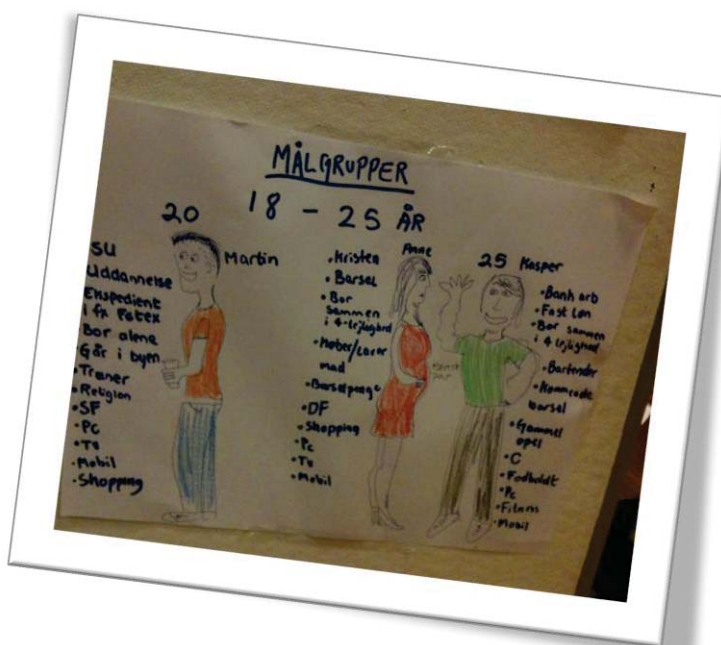 MÅLGRUPPER
18 - 25 ÅR
20
Martin
SU
Uddannelse
Ekspedient
i fx Føtex
Bor alene
Går i byen
• Træner
• Religion
• SF
• PC
• TV
• Mobil
• Shopping
Anne
• Kristen
• Barsel
• Bor
sammen
i 4-lejlighed
• Køber/Laver
mad
• Barselpenge
• DF
• Shopping
• Pc
• Tv
• Mobil
25 Kasper
• Bank arb
• Fast løn
• Bor sammen
i 4 lejlighed
• Bartender
• Kommende
barsel
• Gammel
opel
• C
• Fodboldt
• Pc
• Fitness
• Mobil